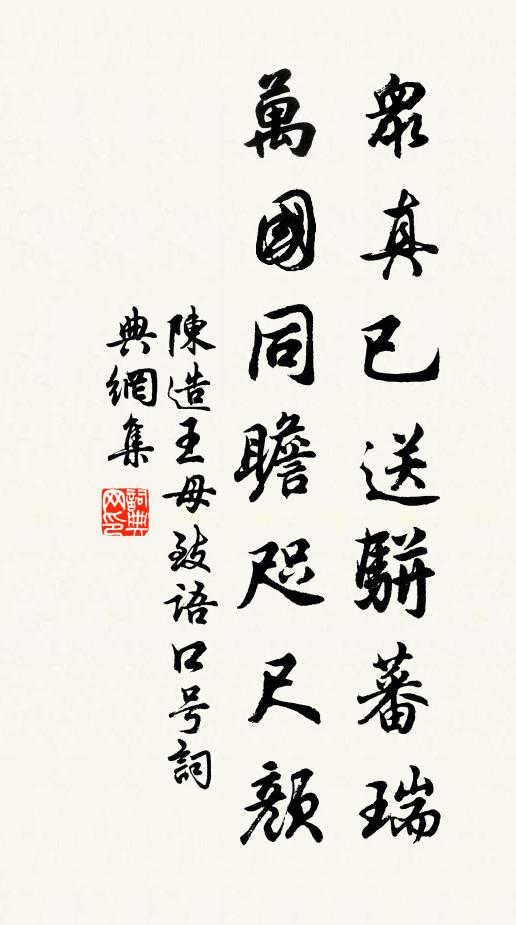 眾真已送駢蕃瑞
萬國同瞻咫尺顏
陳造王母致語口号詞
典網集
詞典
网印